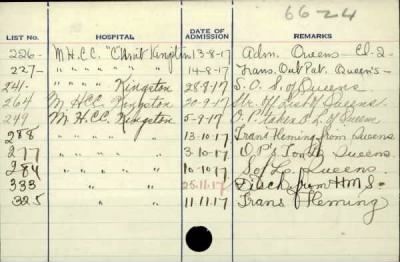 6624
LIST No. HOSPITAL DATE OF ADMISSION REMARKS
226- M.H.C.C. Kingston 13-8-17 Adm. Queens - Cl-2-
227- " " " " " 14-8-17 Trans. Out Pat. Queen's -
241- " " " " Kingston 28-8-17 S.O.S. of Queens
264 M. HCC. Kingston 20-9-17 Str. off of Queens
249 M. H.C.C. Kingston 5-9-17 O.P. of Queen
288 " " " 13-10-17 Trans Fleming from Queens
277 " " " 3-10-17 O.P. to Queens
284 " " " 10-10-17 Queens
333 " " 25.11.17 Disch from HMS-
325 " " 11.11.17 Trans Fleming